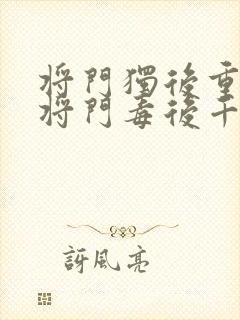 將門獨後重
將門毒後千
訝風亮